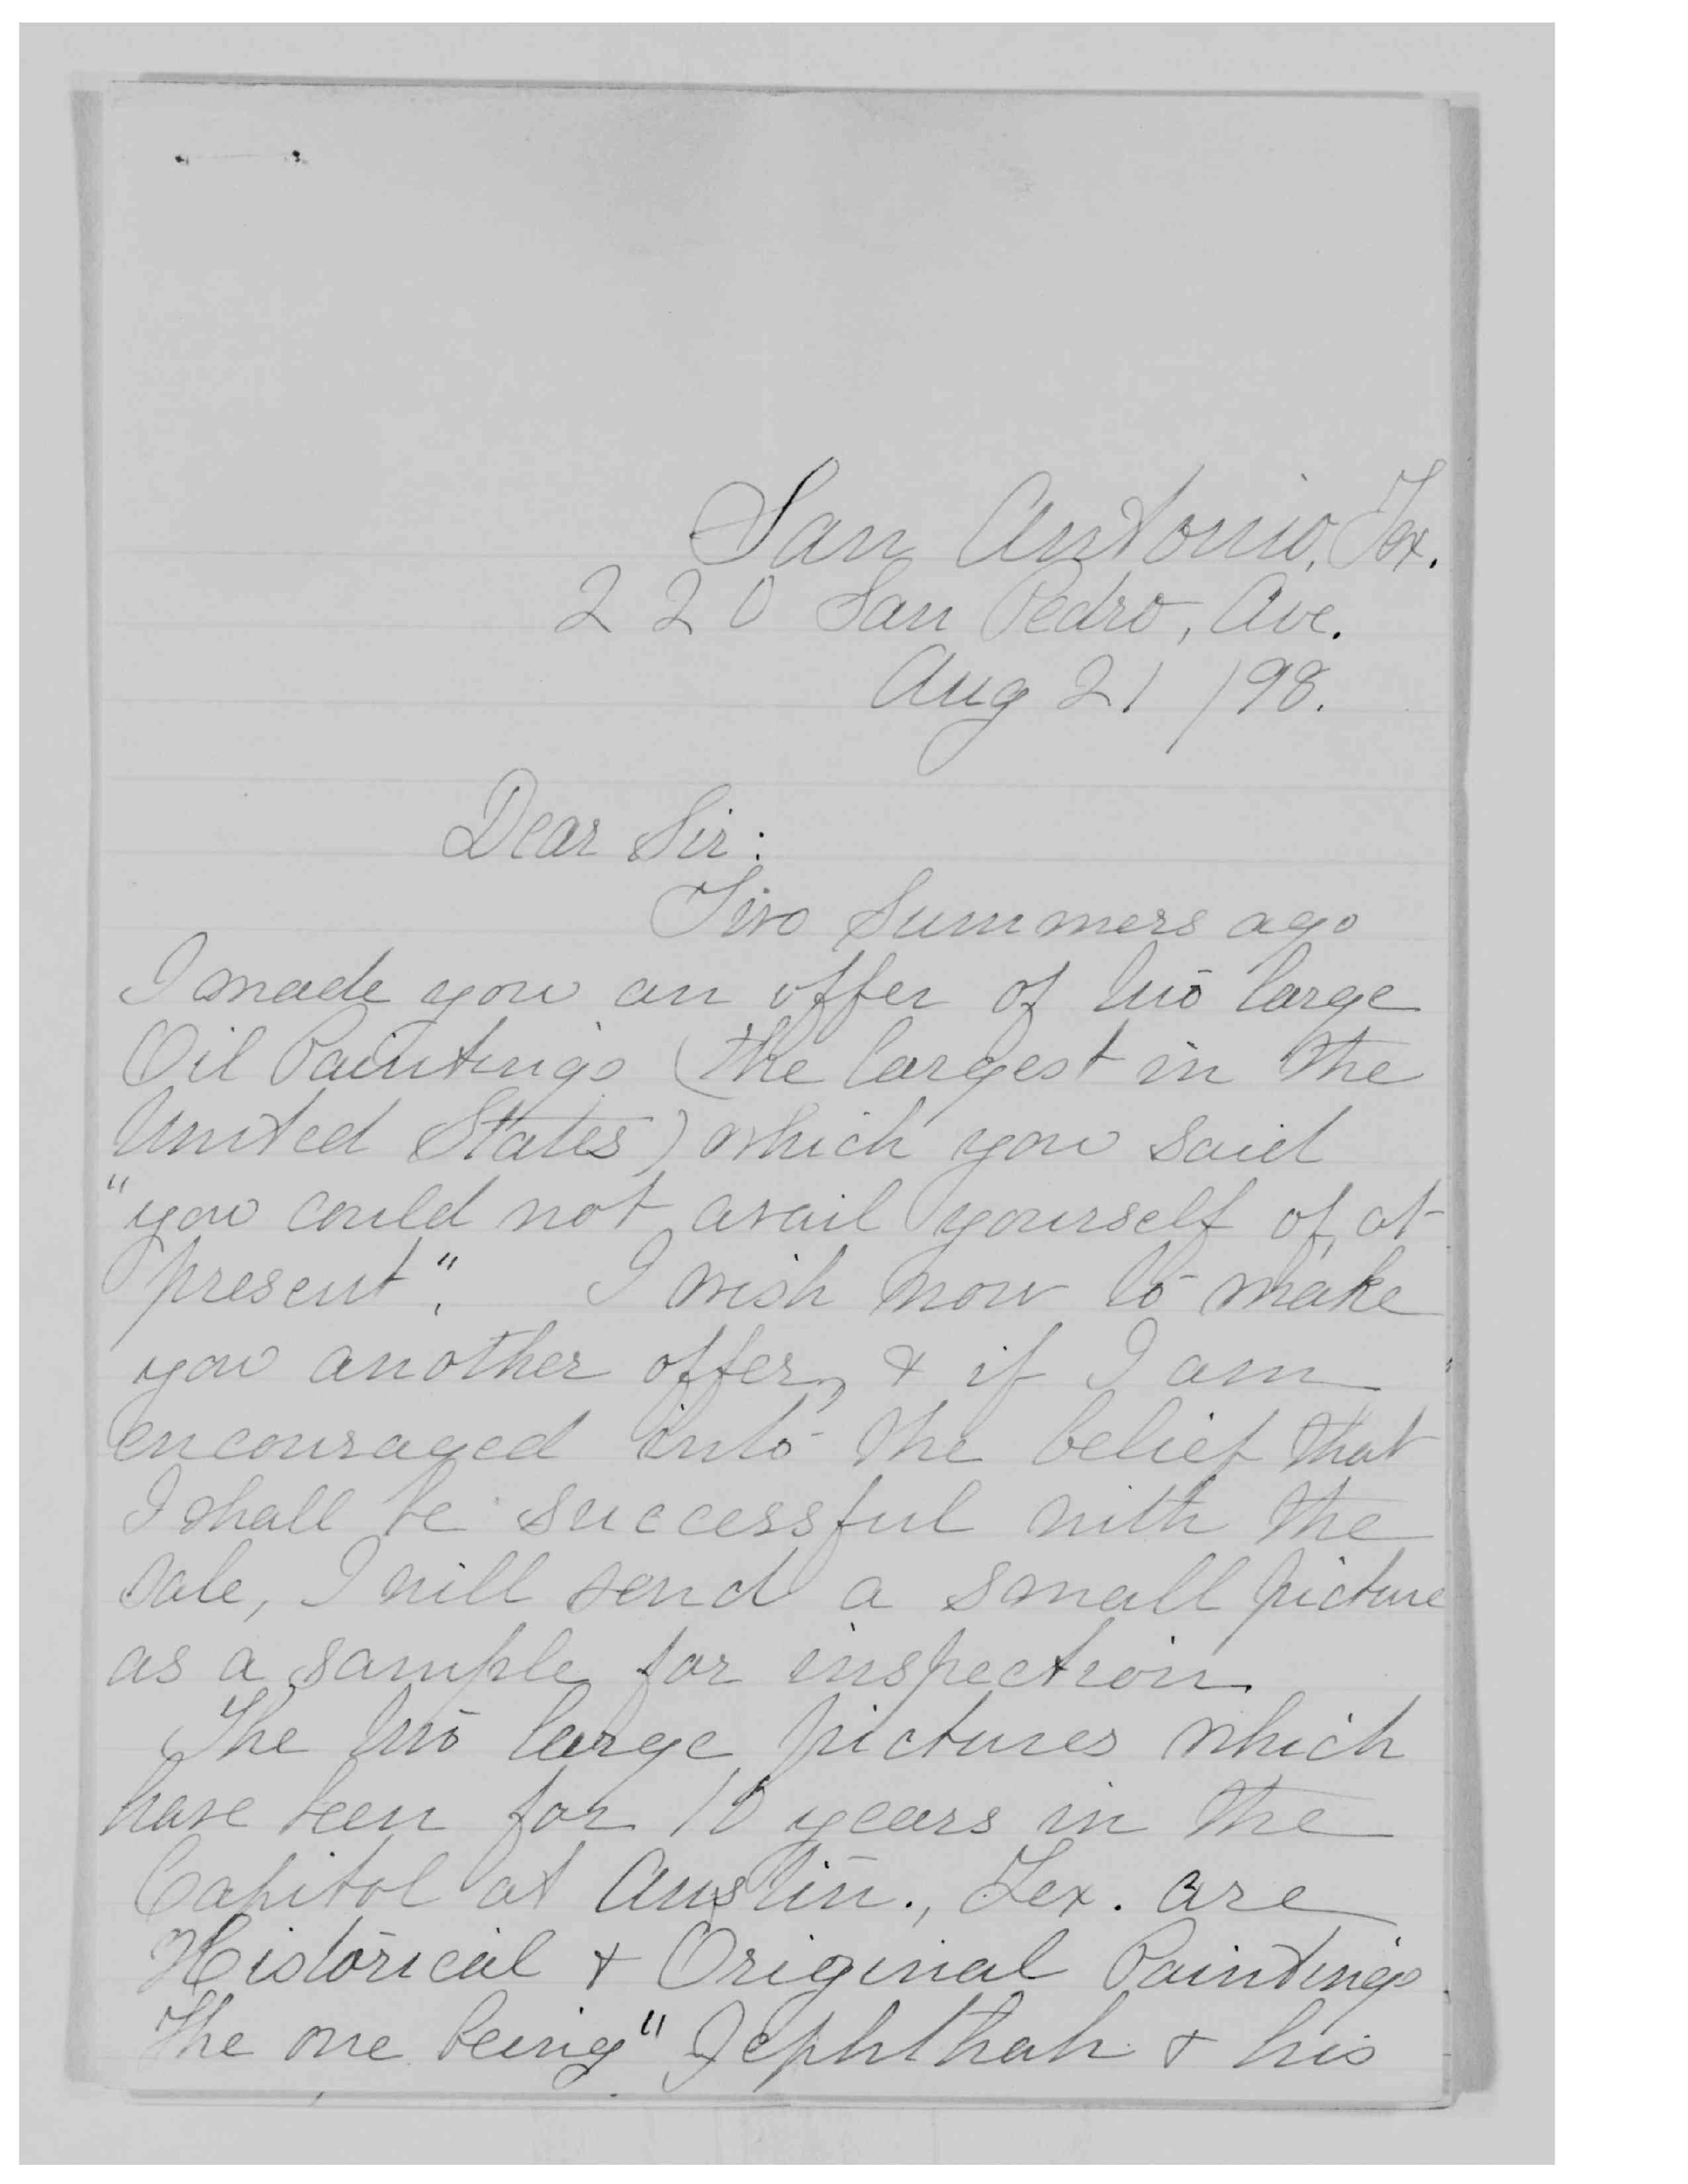 San Antonio, Tex.
220 San Pedro, Ave.
Aug 21 /98.
Dear Sir:
Two Summers ago
I made you an offer of two large
Oil Paintings (the largest in the
United States) which you said
"you could not avail yourself of at
present". I wish now to make
you another offer, & if I am
encouraged into the belief that
I shall be successful with the
sale, I will send a small picture
as a sample for inspection.
The two large pictures which
have been for 10 years in the
Capitol at Austin., Tex. are
Historical & Original Paintings.
The one being "Jephthah & his